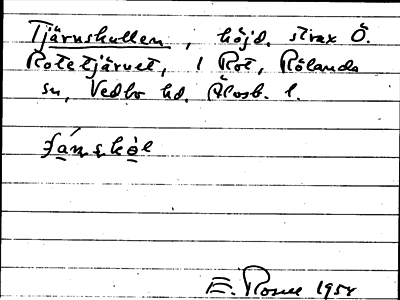 Tjärnskullen, höjd, strax Ö.
Rotetjärnet, 1 Rot, Rölanda
sn, Vedbo hd. Älvsb. l.
E. Rosell 195